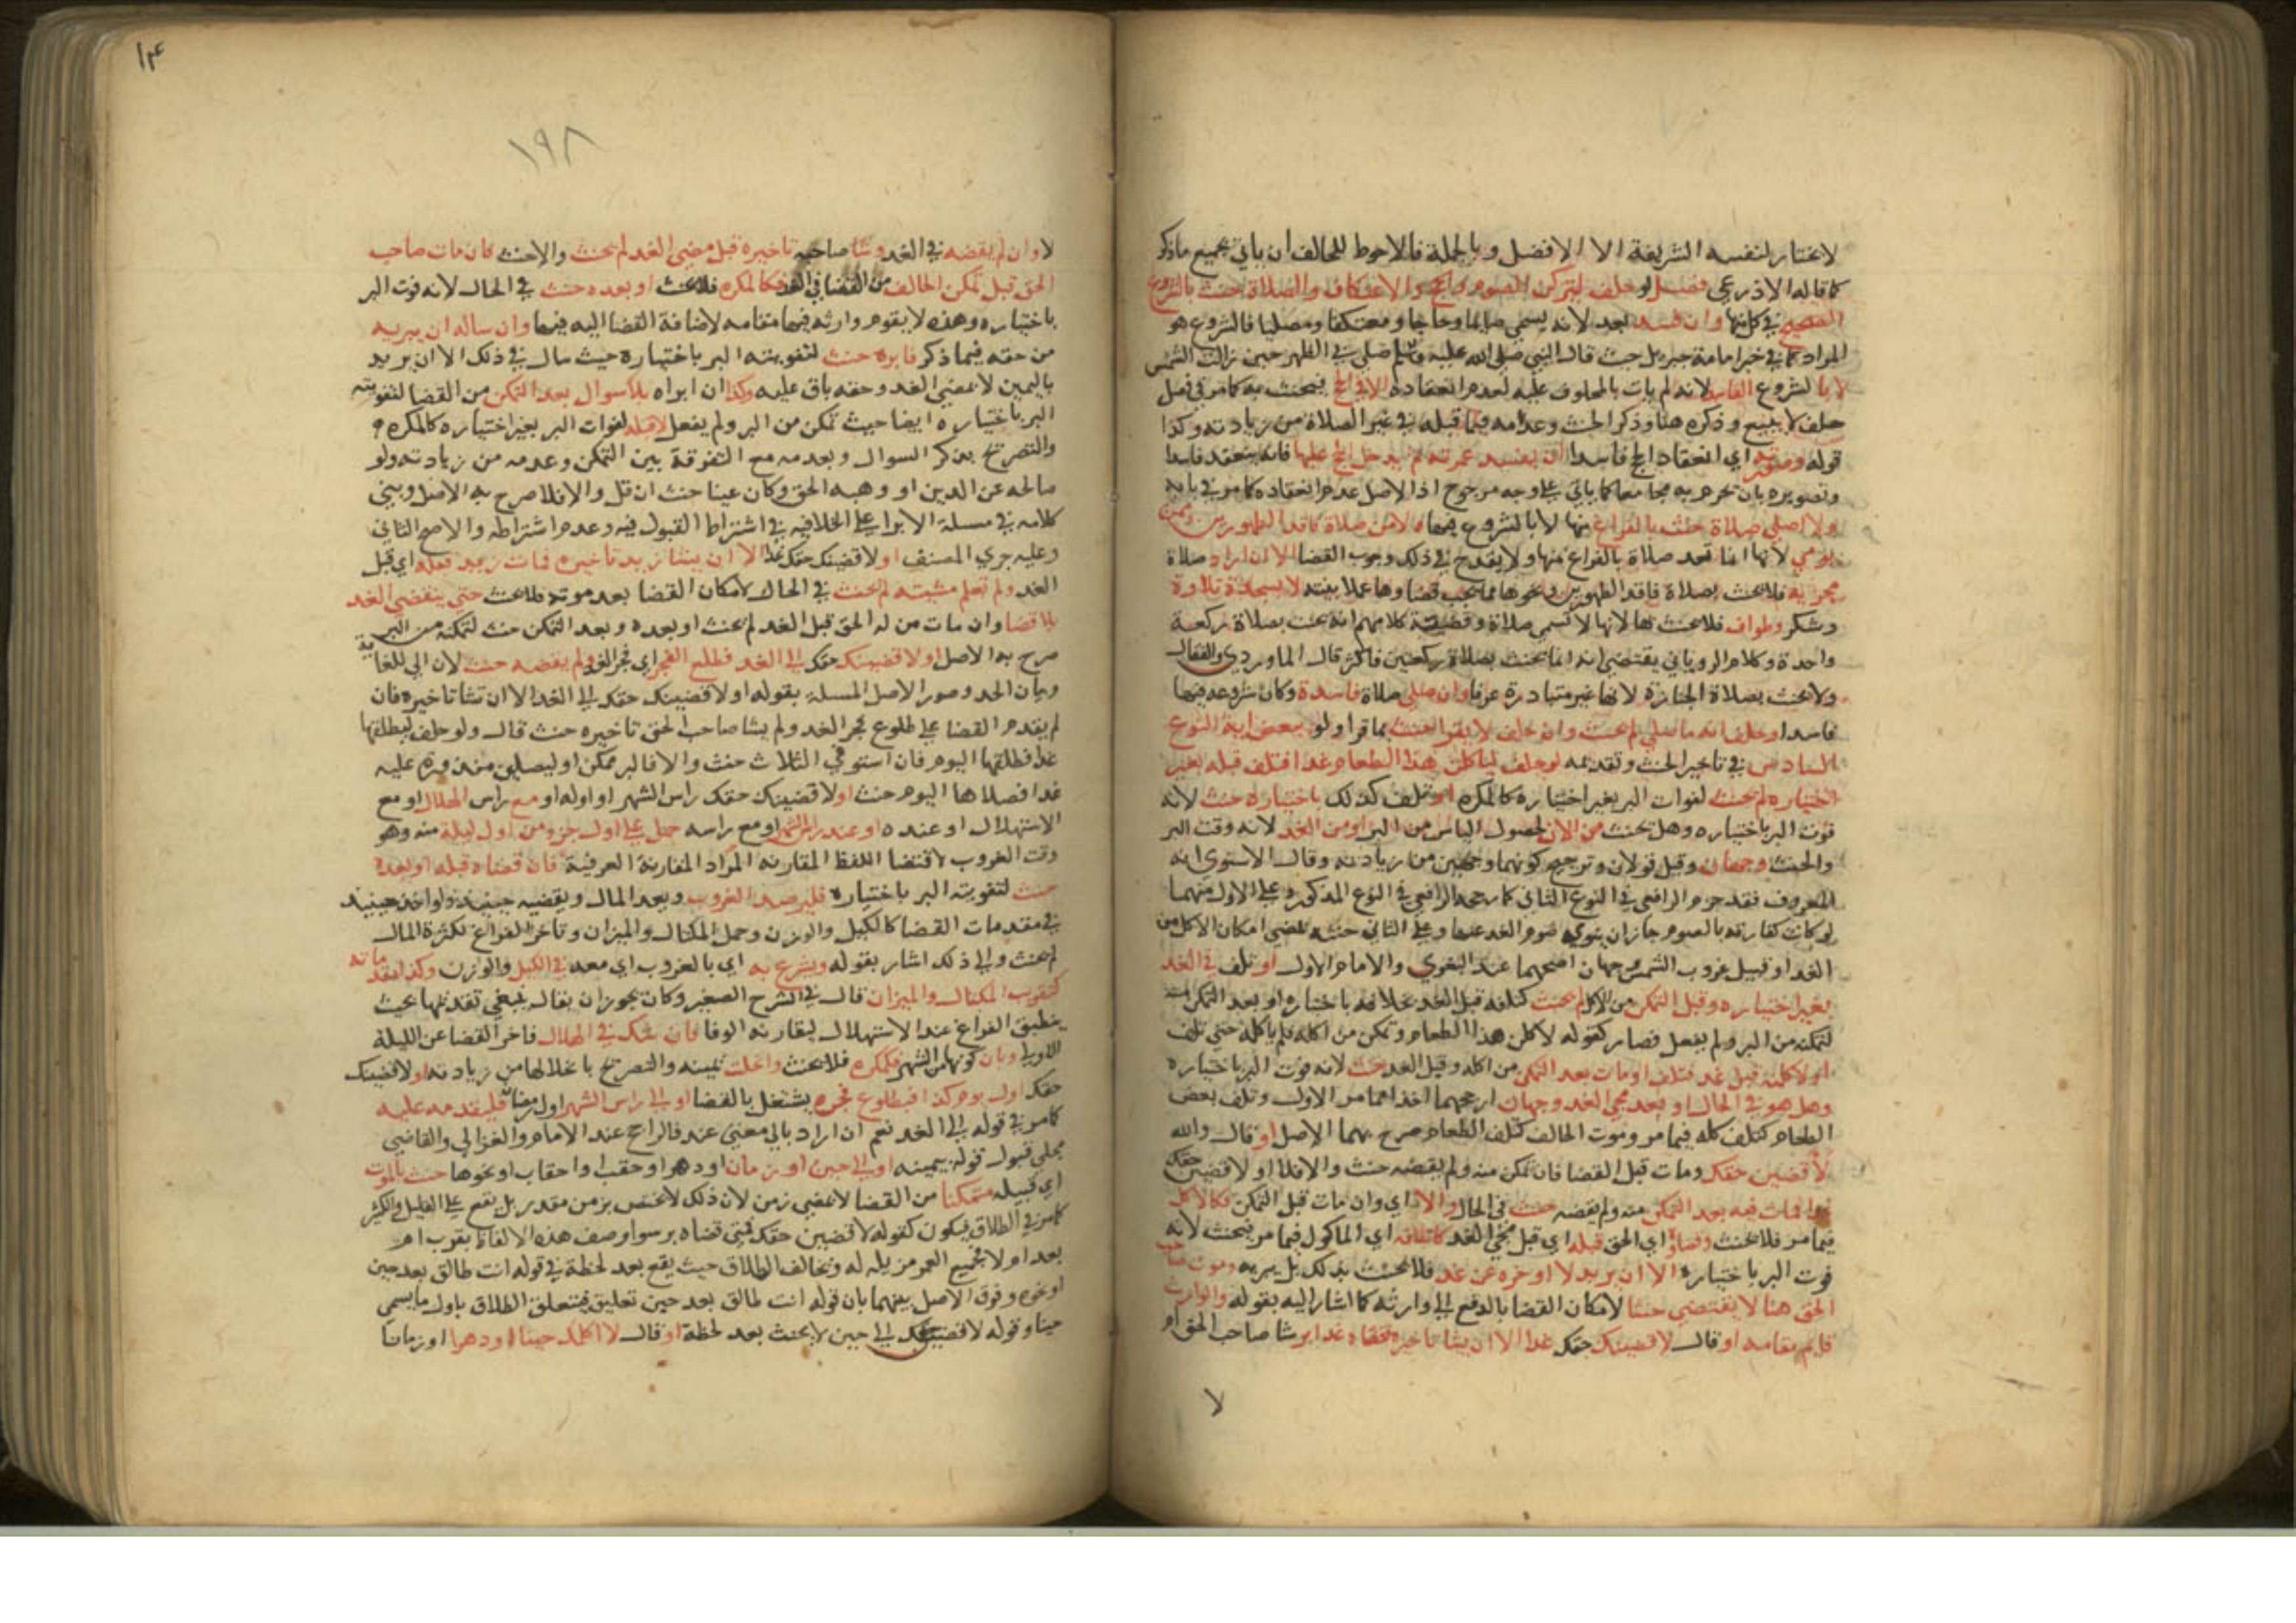 لاختار لنفسه الشريفة الا الافضل وبالجملة فالاحوط للحالف ان ياتي بجميع ماذكر
كما قاله الاذرعي فصل لو حلف ليتركن الصوم والحج والاعتكاف والصلاة حنث بالشروع
الصحيح في كل منها وان فسد بعد لانه يسمي صايما وحاجا ومعتكفا ومصليا فالشروع هو
المراد كما في خبر امامة جبريل حيث قال النبي صلي الله عليه وسلم صلي بي الظهر حين زالت الشمس
لا بالشروع الفاسد لانه لم يات بالمحلوف عليه لعدم انعقاده الا في الحج فيحنث به كما مر في فصل
حلف لا يبيع وذكره هنا وذكر الحنث وعدمه فيما قبله في غير الصلاة من زيادته وكذا
قوله وصورته اي انعقاد الحج فاسدا ان يفسد عمرته ثم يدخل الحج عليها فانه ينعقد فاسدا
وتصويره بان يحرم به مجامعا كما ياتي علي وجه مرجوح اذ الاصل عدم انعقاده كما مر في بابه
ولا اصلي صلاة حنث بالفراغ منها لا بالشروع فيها ولا من صلاة فاقد الطهورين وممن
يومي لانها انما تعد صلاة بالفراغ منها ولا يقدح في ذلك وجوب القضا الا ان اراد صلاة
مجزية فلا يحنث بصلاة فاقد الطهورين ونحوها مما يجب قضاوها عملا بنيته لا بسجدة تلاوة
وشكر وطواف فلا يحنث بها لانها لا تسمي صلاة وقضية كلامهم انه يحنث بصلاة ركعة
واحدة وكلام الروياني يقتضي انه انما يحنث بصلاة ركعتين فاكثر قال الماوردي والقفال
ولا يحنث بصلاة الجنازة لانها غير متبادرة عرفا وان صلي صلاة فاسدة وكان شروعه فيها
فاسدا وحلف انه ما صلي لم يحنث وان حلف لا يقرا حنث بما قرا ولو بعض اية النوع
السادس في تاخير الحنث وتقديمه لو حلف لياكلن هذا الطعام غدا فتلف قبله بغير
اختياره لم يحنث لفوات البر بغير اختياره كالمكره او تلف كذلك باختياره حنث لانه
فوت البر باختياره وهل يحنث من الان لحصول الياس من البر او من الغد لانه وقت البر
والحنث وجهان وقيل قولان وترجيح كونهما وجهين من زيادته وقال الاسنوي انه
المعروف فقد جزم الرافعي في النوع الثاني كما رجحه الرافعي في النوع المذكور وعلي الاول منهما
لو كانت كفارته بالصوم جاز ان ينوي صوم الغد عنها وعلي الثاني حنثه لمضي امكان الاكل من
الغد او قبيل غروب الشمس وجهان اصحهما عند البغوي والامام الاول او تلف في الغد
بغير اختياره وقبل التمكن من الاكل لم يحنث كتلفه قبل الغد بخلافه باختياره او بعد التمكن منه
لتمكنه من البر ولم يفعل فصار كقوله لاكلن هذا الطعام وتمكن من اكله فلم ياكله حتي تلف
او لاكلنه قبل غد فتلف او مات بعد التمكن من اكله وقبل الغد حنث لانه فوت البر باختياره
وهل هو في الحال او بعد مجي الغد وجهان ارجحهما اخذا مما مر الاول وتلف بعض
الطعام كتلف كله فيما مر وموت الحالف كتلف الطعام صرح بهما الاصل او قال والله
لاقضين حقك ومات قبل القضا فان تمكن منه ولم يقضه حنث والا فلا او لاقضين حقك
غدا فمات فيه بعد التمكن منه ولم يقضه حنث في الحال والا اي وان مات قبل التمكن فكالاكل
فيما مر فلا يحنث وقضاؤه اي الحق قبله اي قبل مجي الغد كاتلافه اي الماكول فيما مر فيحنث لانه
فوت البر باختياره الا ان يريد لا اوخره عن غد فلا يحنث بذلك بل يبر به وموت صاحب
الحق هنا لا يقتضي حنثا لامكان القضا بالدفع الي وارثه كما اشار اليه بقوله والوارث
قايم مقامه او قال لاقضينك حقك غدا الا ان يشا تاخيره فقضاه غدا بر شا صاحب الحق او
لا
١٩٨
لا وان لم يقضه في الغد وشا صاحبه تاخيره قبل مضي الغد لم يحنث والا حنث كان مات صاحب
الحق قبل تمكن الحالف من القضا في الغد فكالمكره فلا يحنث او بعده حنث في الحال لانه فوت البر
باختياره وهذه لا يقوم وارثه فيها مقامه لاضافة القضا اليه فيها وان ساله ان يبريه
من حقه فيما ذكر فابره حنث لتفويته البر باختياره حيث سال في ذلك الا ان يريد
باليمين لا يمضي الغد وحقه باق عليه وكذا ان ابراه بلا سوال بعد التمكن من القضا لتفويته
البر باختياره ايضا حيث تمكن من البر ولم يفعل لا قبله لفوات البر بغير اختياره كالمكره
والتصريح بذكر السوال وبعدمه مع التفرقة بين التمكن وعدمه من زيادته ولو
صالحه عن الدين او وهبه الحق وكان عينا حنث ان قبل والا فلا صرح به الاصل وبني
كلامه في مسلة الابرا علي الخلاف في اشتراط القبول فيه وعدم اشتراطه والاصح الثاني
وعليه جري المصنف او لاقضينك حقك غدا الا ان يشا زيد تاخيره فمات زيد قبله اي قبل
الغد ولم تعلم مشيته لم يحنث في الحال لامكان القضا بعد موته فلا يحنث حتي ينقضي الغد
بلا قضا وان مات من له الحق قبل الغد لم يحنث او بعده وبعد التمكن حنث لتمكنه من البر
صرح به الاصل او لاقضينك حقك الي الغد فطلع الفجر اي فجر الغد ولم يقضه حنث لان الي للغاية
وبيان الحد وصور الاصل المسلة بقوله او لاقضينك حقك الي الغد الا ان تشا تاخيره فان
لم يقدم القضا علي طلوع فجر الغد ولم يشا صاحب الحق تاخيره حنث قال ولو حلف ليطلقنها
غدا فطلقها اليوم فان استوفي الثلاث حنث والا فالبر ممكن او ليصلين منذورة عليه
غدا فصلاها اليوم حنث او لاقضينك حقك راس الشهر او اوله او مع راس الهلال او مع
الاستهلال او عنده او عند راس الشهر او مع راسه حمل علي اول جزء من اول ليلة منه وهو
وقت الغروب لاقتضا اللفظ المقارنة المراد المقارنة العرفية فان قضاه قبله او بعده
حنث لتفويته البر باختياره فليرصد الغروب ويعد المال ويقضيه حينيذ ولو اخذ حينيذ
في مقدمات القضا كالكيل والوزن وحمل المكيال والميزان وتاخر الفراغ لكثرة المال
لم يحنث والي ذلك اشار بقوله ويشرع به اي بالغروب اي معه في الكيل والوزن وكذا مقدماته
كتقريب المكيال والميزان قال في الشرح الصغير وكان يجوز ان يقال ينبغي تقديمها بحيث
ينطبق الفراغ عند الاستهلال ليقارنه الوفا فان شك في الهلال فاخر القضا عن الليلة
الاولي وبان كونها من الشهر فكمكره فلا يحنث وانحلت يمينه والتصريح بانحلالها من زيادته او لاقضينك
حقك اول يوم كذا فبطلوع فجره يشتغل بالقضا او الي راس الشهر او رمضان فليقدمه عليه
كما مر في قوله الي الغد نعم ان اراد بالي معني عند فالراجح عند الامام والغزالي والقاضي
مجلي قبول قوله بيمينه او الي حين او زمان او دهر او حقب او احقاب او نحوها حنث بالموت
اي قبيله متمكنا من القضا لا بمضي زمن لان ذلك لا يختص بزمن مقدر بل يقع علي القليل والكثير
كما مر في الطلاق فيكون كقوله لاقضين حقك فمتي قضاه بر سوا وصف هذه الالفاظ بقرب ام
بعد او لا فجميع العمر مهلة له ويخالف الطلاق حيث يقع بعد لحظة في قوله انت طالق بعد حين
او نحوه وفرق الاصل بينهما بان قوله انت طالق بعد حين تعليق فيتعلق الطلاق باول ما يسمي
حينا وقوله لاقضين حقك الي حين لا يحنث بعد لحظة او قال لا اكلمك حينا او دهرا او زمانا